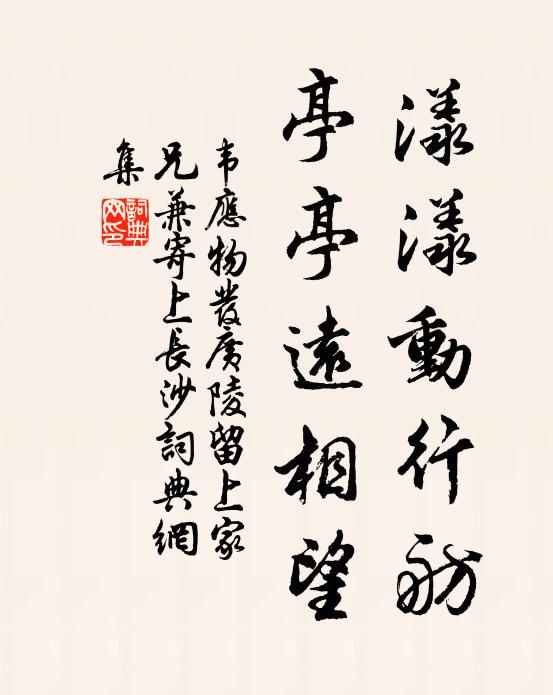 漾漾動行舫
亭亭遠相望
韦應物發廣陵留上家
兄兼寄上長沙詞典網
集
詞典網印